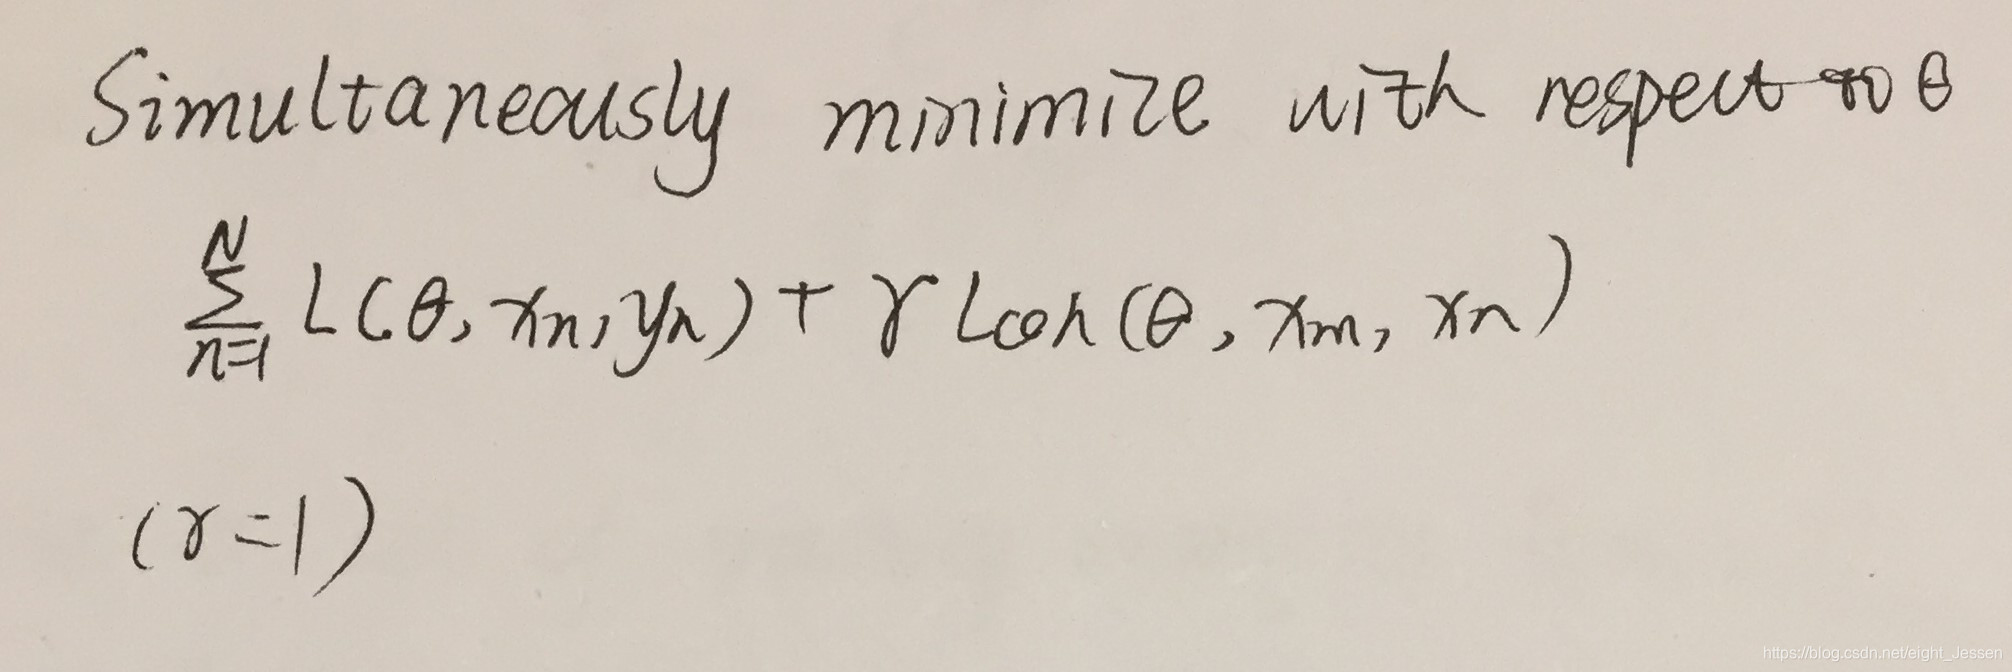 Simultaneously minimize with respect to θ
∑_{n=1}^{N} L(θ, x_n, y_n) + γ L_{coh}(θ, x_m, x_n)
(γ=1)
https://blog.csdn.net/eight_Jessen